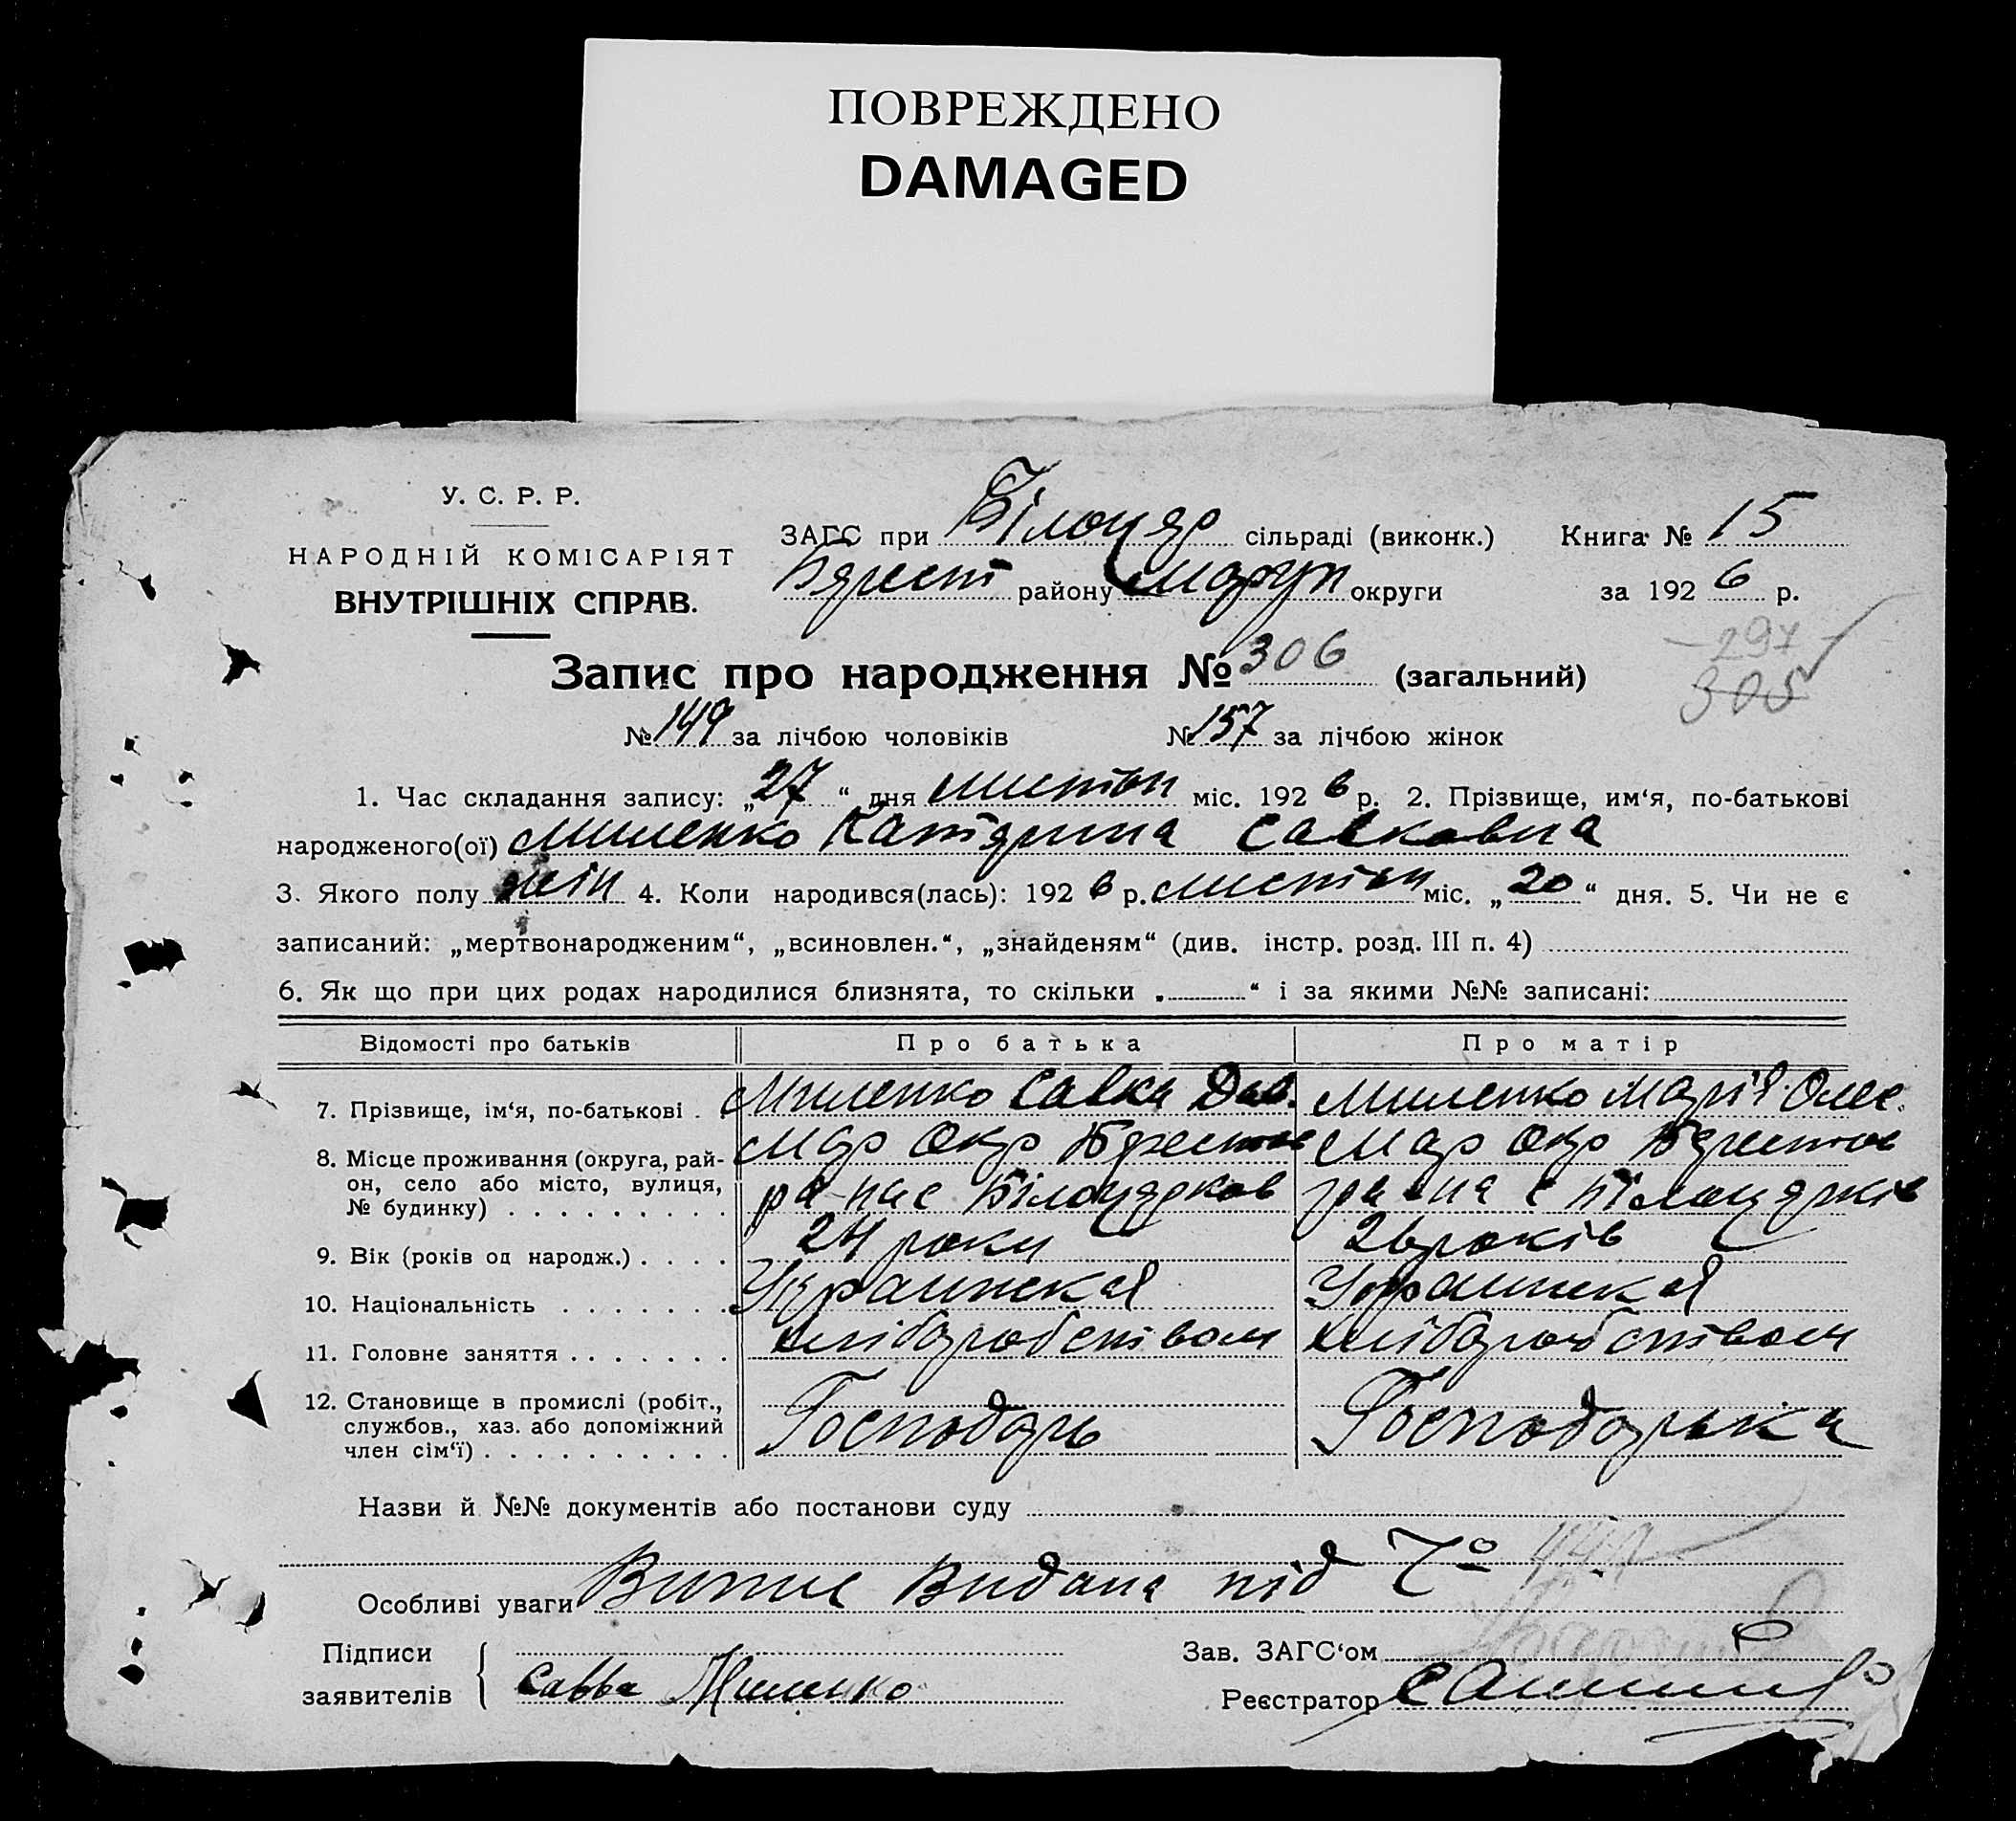 ПОВРЕЖДЕНО
DAMAGED
У. С. Р. Р.
НАРОДНІЙ КОМІСАРІЯТ
ВНУТРІШНІХ СПРАВ.
ЗАГС при Білоцер сільраді (виконк.) Книга № 15
Берест району Маруп округи за 1926 р.
Запис про народження № 306 (загальний)
297
305
№ 149 за лічбою чоловіків № 157 за лічбою жінок
1. Час складання запису: „27“ дня листоп міс. 1926 р. 2. Прізвище, им‘я, по-батькові
народженого(ої) Миленко Катерина Савковна
3. Якого полу жін 4. Коли народився(лась): 1926 р. листоп міс. „20“ дня. 5. Чи не є
записаний: „мертвонародженим“, „всиновлен.“, „знайденям“ (див. інстр. розд. III п. 4)
6. Як що при цих родах народилися близнята, то скільки „ “ і за якими №№ записані:
Відомості про батьків Про батька Про матір
7. Прізвище, ім‘я, по-батькові . Миленко Савка Миленко Марія Олек.
8. Місце проживання (округа, рай- Мар Окр Берестов Мар Окр Берестов
он, село або місто, вулиця,
№ будинку) . . . . . . . . . .
9. Вік (років од народж.) . . . . 24 роки 26 років
10. Національність . . . . . . . Украинская Украинская
11. Головне заняття . . . . . . . хліборобством хліборобством
12. Становище в промислі (робіт.,
службов., хаз. або допоміжний
член сім‘ї) . . . . . . . . . . Господарь Господарька
Назви й №№ документів або постанови суду
Особливі уваги Випис Видана під
Підписи
заявителів Савва Миленко
Зав. ЗАГС‘ом
Реєстратор